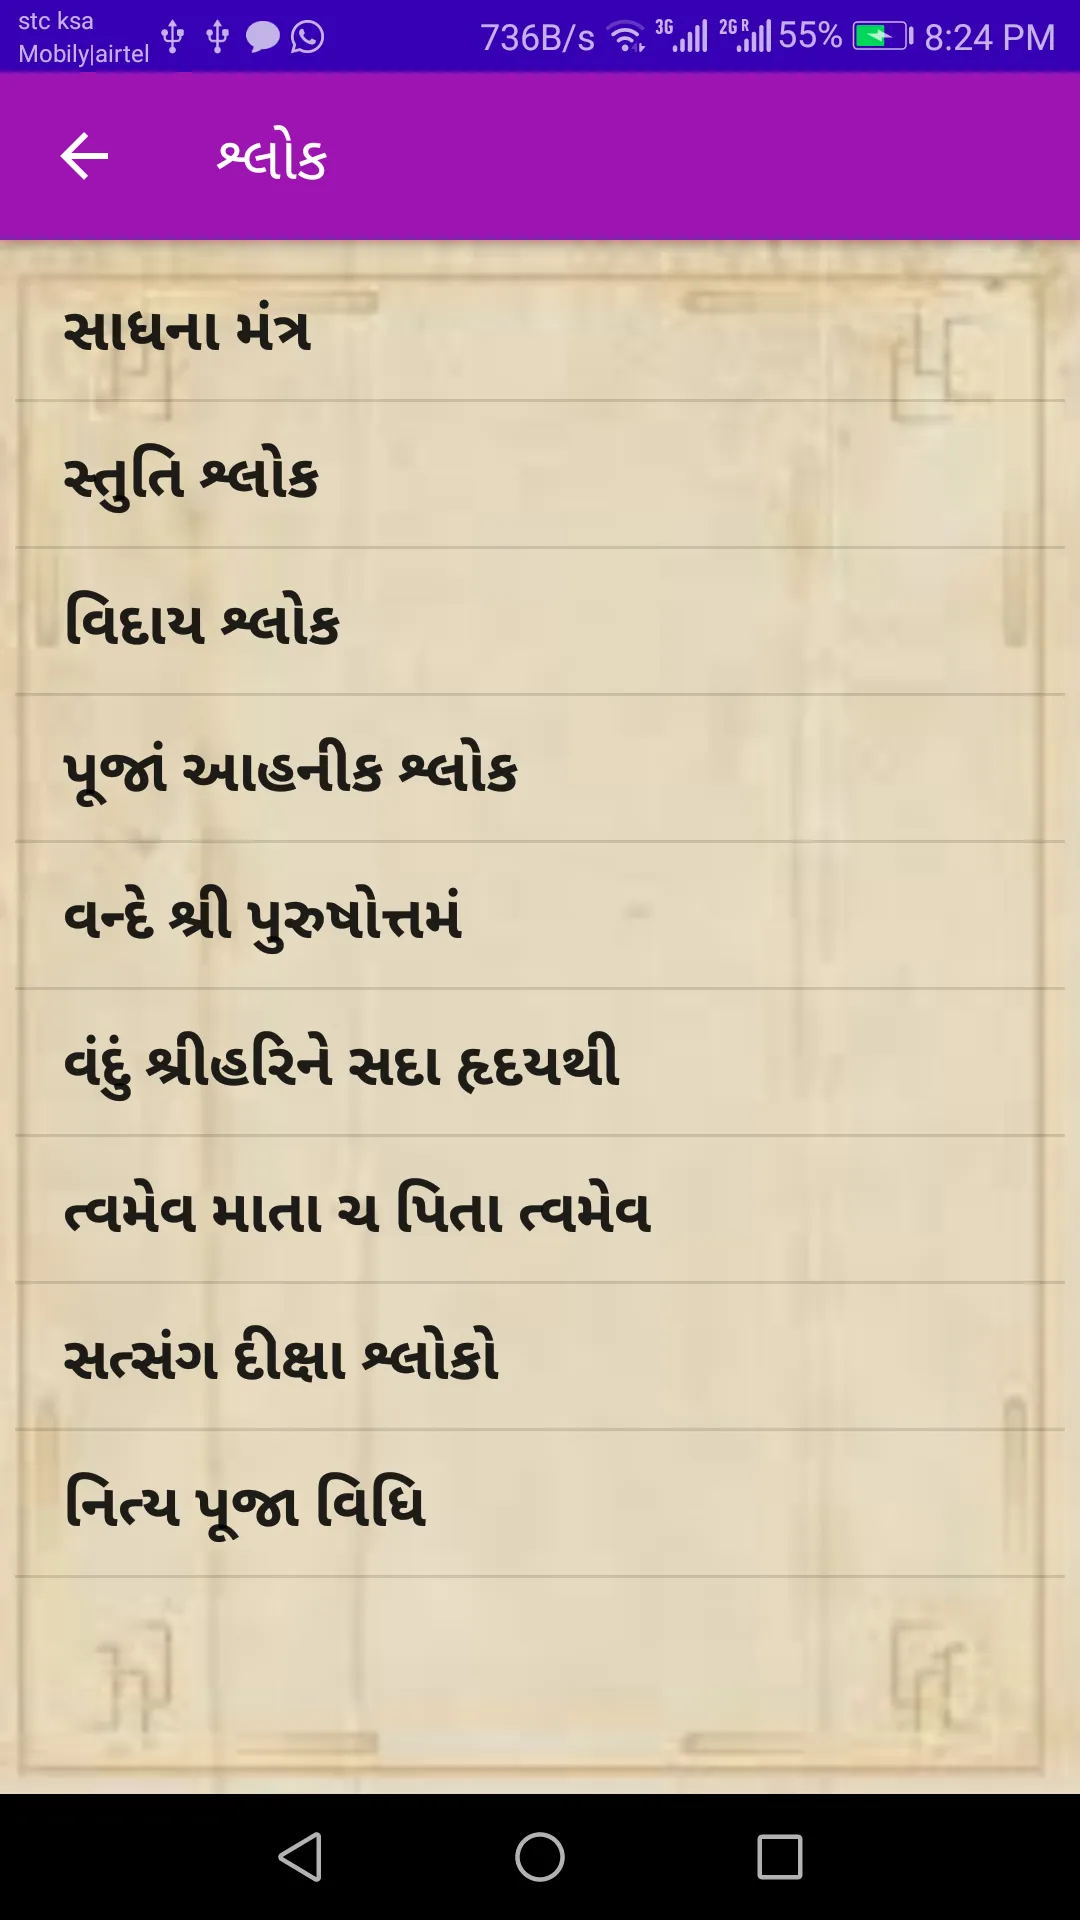 stc ksa
Mobily|airtel
736B/s 3G 2G R 55% 8:24 PM
શ્લોક
સાધના મંત્ર
સ્તુતિ શ્લોક
વિદાય શ્લોક
પૂજાં આહનીક શ્લોક
વન્દે શ્રી પુરુષોત્તમં
વંદું શ્રીહરિને સદા હૃદયથી
ત્વમેવ માતા ચ પિતા ત્વમેવ
સત્સંગ દીક્ષા શ્લોકો
નિત્ય પૂજા વિધિ